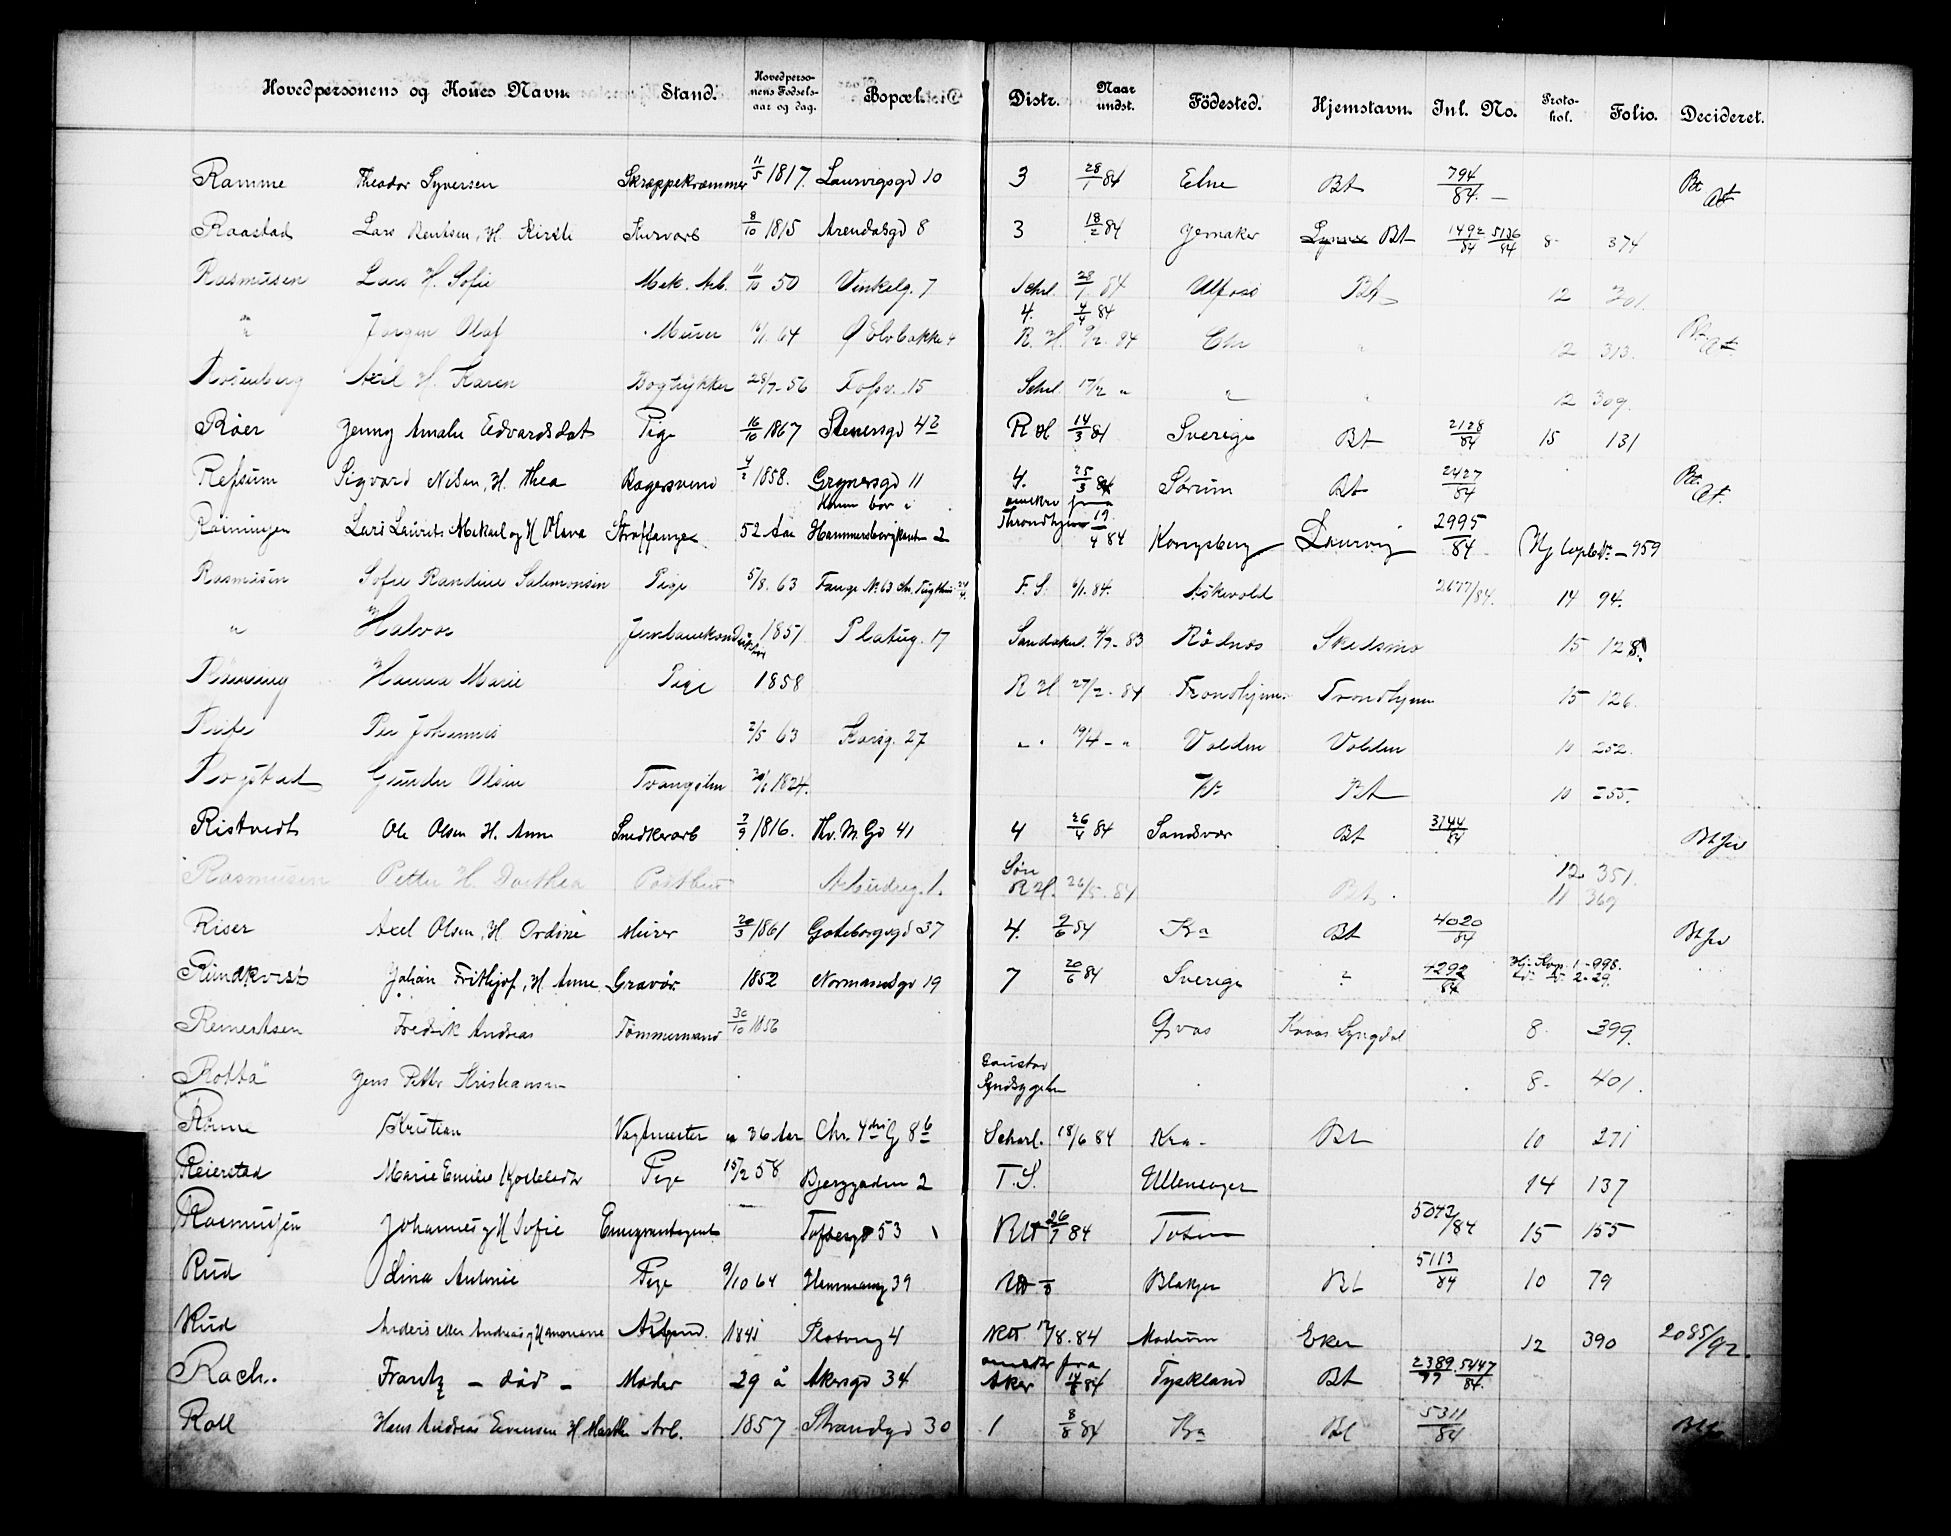 Hovedpersonens og Kones Navn. Stand. Hovedpersonens Fødselsaar og dag. Bopæl. Distr. Naar undst. Födested. Hjemstavn. Inl. No. Protokol. Folio. Decideret.
Ramme Theodor Syversen Skræppekræmmer 11/5 1817. Laurvigsgd 10 3 28/1 84 Bt 794/84. Bt
Raastad Lars Bentsen, H. Kirsti Snurvarb 8/10 1815 Arendalsgd 8 3 18/2 84 Gjemaker Bt 1492/84 5136/84 8 374
Rasmussen Lars H. Sofie Mek. Arb. 11/10 50 Vinkelg. 7 Schel. 28/1 84 Ulfoss Bt 12 301.
4. 4/4 84
" Jørgen Olaf Murer 64 Ø Elvebakke 4 R. H. 9/2 84 Chr " 12 313. Bt
Rosenberg Axel H. Karen Bogtrykker 28/7 56 Fossv. 15 Schel 17/2 " " " 12 309.
Röer Jenny Amalie Edvardsdat Pige 16/10 1867 Stenersgd 4 R H 14/3 84 Sverige Bt 2128/84 15 131
Refsum Sigvard Nilsen, H. Thea Bagersvend 4/2 1858. Grynersgd 11 4. 25/3 84 Sörum Bt 2427/84 Bt
Konen bor i
Lars Laurits Mikael og H Olava Straffange 52 Aar Hammersborgkanten 2 Throndhjem 19/4 84 Kongsberg Laurvig 2995/84 Hj Copib. 959
Rasmussen Sofie Randine Salomonsen Pige 5/8. 63 Fange No 63 Chr. Tugthus F. S. 6/1. 84. Askevold 2677/84. 14 94.
" Halvor Jernbanekonduktør 1851 Platug. 17 4/7 83 Rödnes Skedsmo 15 128.
Rönning Hanna Marie Pige 1858 R H 27/2 84 Trondhjem Trondhjem 15 126.
Per Johannes 2/5 63 Korsg. 27 " 19/4 " Volden Volden 10 252.
Rogstad Gunder Olsen Tvangslem 1824. Bt 10 255.
Ristvedt Ole Olsen H. Anne Snedkerarb 7/9 1816. Th. M. Gd 41 4 26/4 84 Sandsvær Bt 3744/84 Bt
Rasmussen Petter H. Dorthea Postbud R. H. 26/5 84 Bt 12 351.
11 369
Riser Axel Olsen, H Ordine Murer 20/3 1861 Goteborgsgd 37 4. 9/6 84 Kra Bt 4020/84 Bt
Rundkvist Johan Frithjof, H Anne Gravör. 1852 Normandsgd 19 7 20/6 84 Sverige " 4292/84 Hj. Kop. 1 - 998.
2. 29.
Remertsen Fredrik Andreas Tömmermand 30/10 1856 Qvas Kvas Lyngdal 8 399.
Rotta Jens Petter Kristiansen Gaustad Sindsygeh 8 401.
Rönne Kristian Vagtmester 36 Aar Chr. 4 G 8 Scharl. 18/6 84 Kra Bt 10 271
Reierstad Marie Emilie Pige 15/2 58 Bjerggaden 2 T. S. Ullensager 14 137
Rasmussen Johannes og H Sofie Emigrantagent Toftesgd 53 26/7 84 Toten 5072/84 15 155
Rud Olina Antonie Pige 9/10 64 Hammersg 39 Blakjer Bt 5113/84 10 79
Rud Anders eller Andreas og H Mariane Arbejd. 1841 Platoug 4 12/8. 84 Modum Eker 12 390 2085/92.
Rach. Frantz - död - Maler 29 å Akersgd 34 Aker 14/8 84 Tyskland Bt 2389/99 5447/84.
Roll Hans Andreas Evensen H Marthe Arb. 1857 Strandgd 30 1 8/8 84 Kra Bt 5311/84